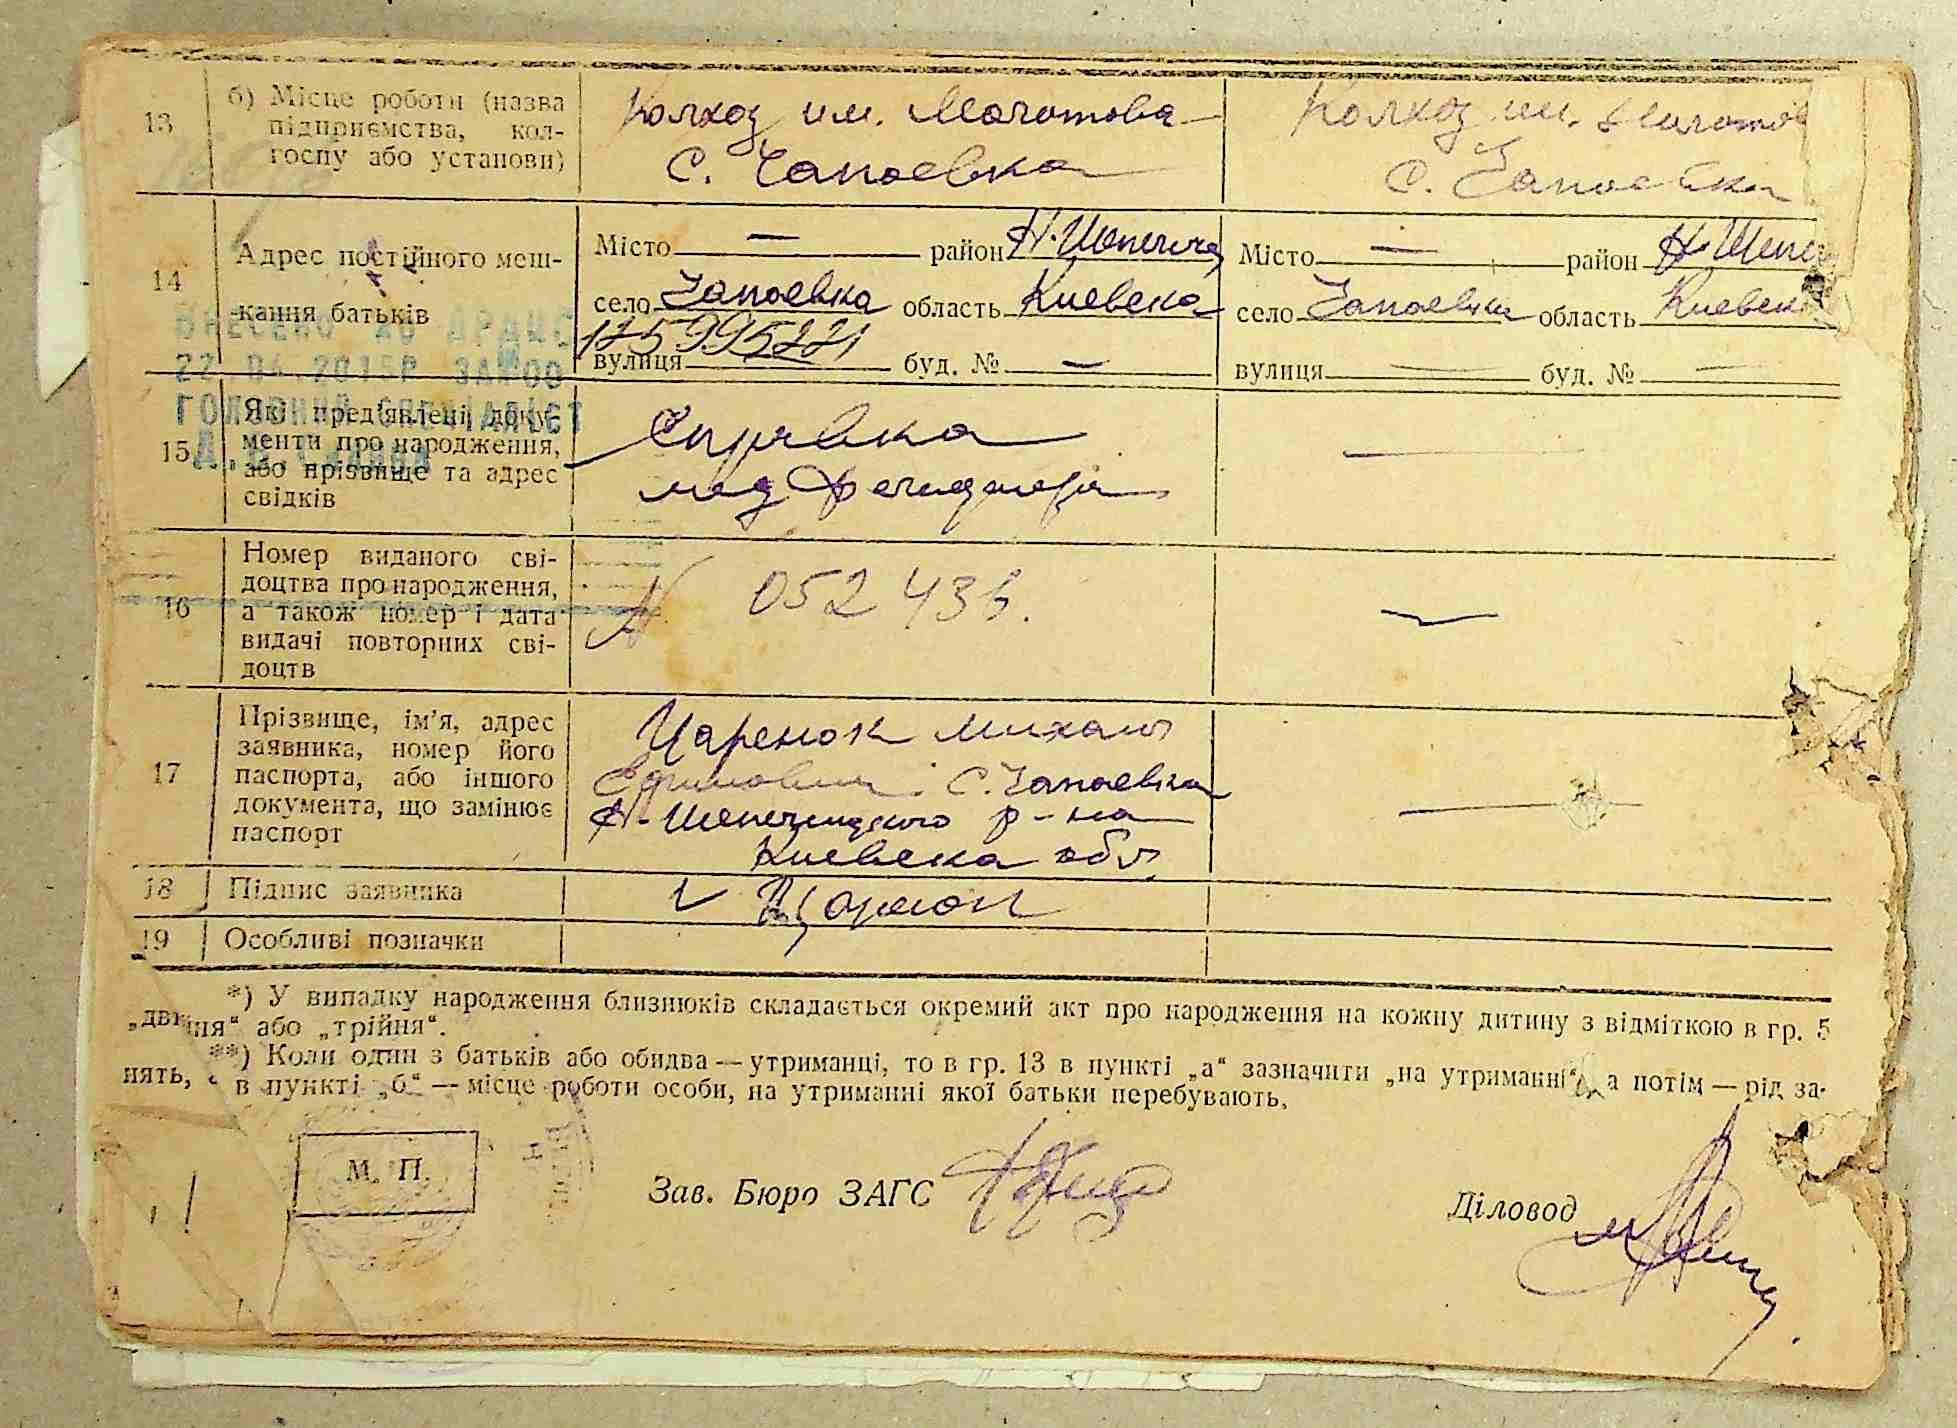 13
б) Місце роботи (назва
підприємства, кол-
госпу або установи)
Колхоз им. Молотова
с. Чапаевка
Колхоз им. Молотов
с. Чапаевка
14
Адрес постійного меш-
кання батьків
Місто — район Н.Шепелич
село Чапаевка область Киевска
175995221
вулиця буд. № —
Місто — район Н.Шепе
село Чапаевка область Киевск
вулиця — буд. № —
ВНЕСЕНО ДО ДРАЦС
22.04.2015Р ЗА №00
ГОЛОВНИЙ СПЕЦІАЛІСТ
15
Які пред'явлені доку-
менти про народження,
або прізвище та адрес
свідків
Справка
мед
—
16
Номер виданого сві-
доцтва про народження,
а також номер і дата
видачі повторних сві-
доцтв
N 052436.
—
17
Прізвище, ім'я, адрес
заявника, номер його
паспорта, або іншого
документа, що замінює
паспорт
Царенок Михаил
Ефимович с. Чапаевка
Н-Шепелицкого р-на
Киевска обл.
—
18
Підпис заявника
Царенок
19
Особливі позначки
*) У випадку народження близнюків складається окремий акт про народження на кожну дитину з відміткою в гр. 5
„двійня“ або „трійня“.
**) Коли один з батьків або обидва — утриманці, то в гр. 13 в пункті „а“ зазначити „на утриманні“, а потім — рід за-
нять, в пункті „б“ — місце роботи особи, на утриманні якої батьки перебувають.
М. П.
Зав. Бюро ЗАГС
Діловод